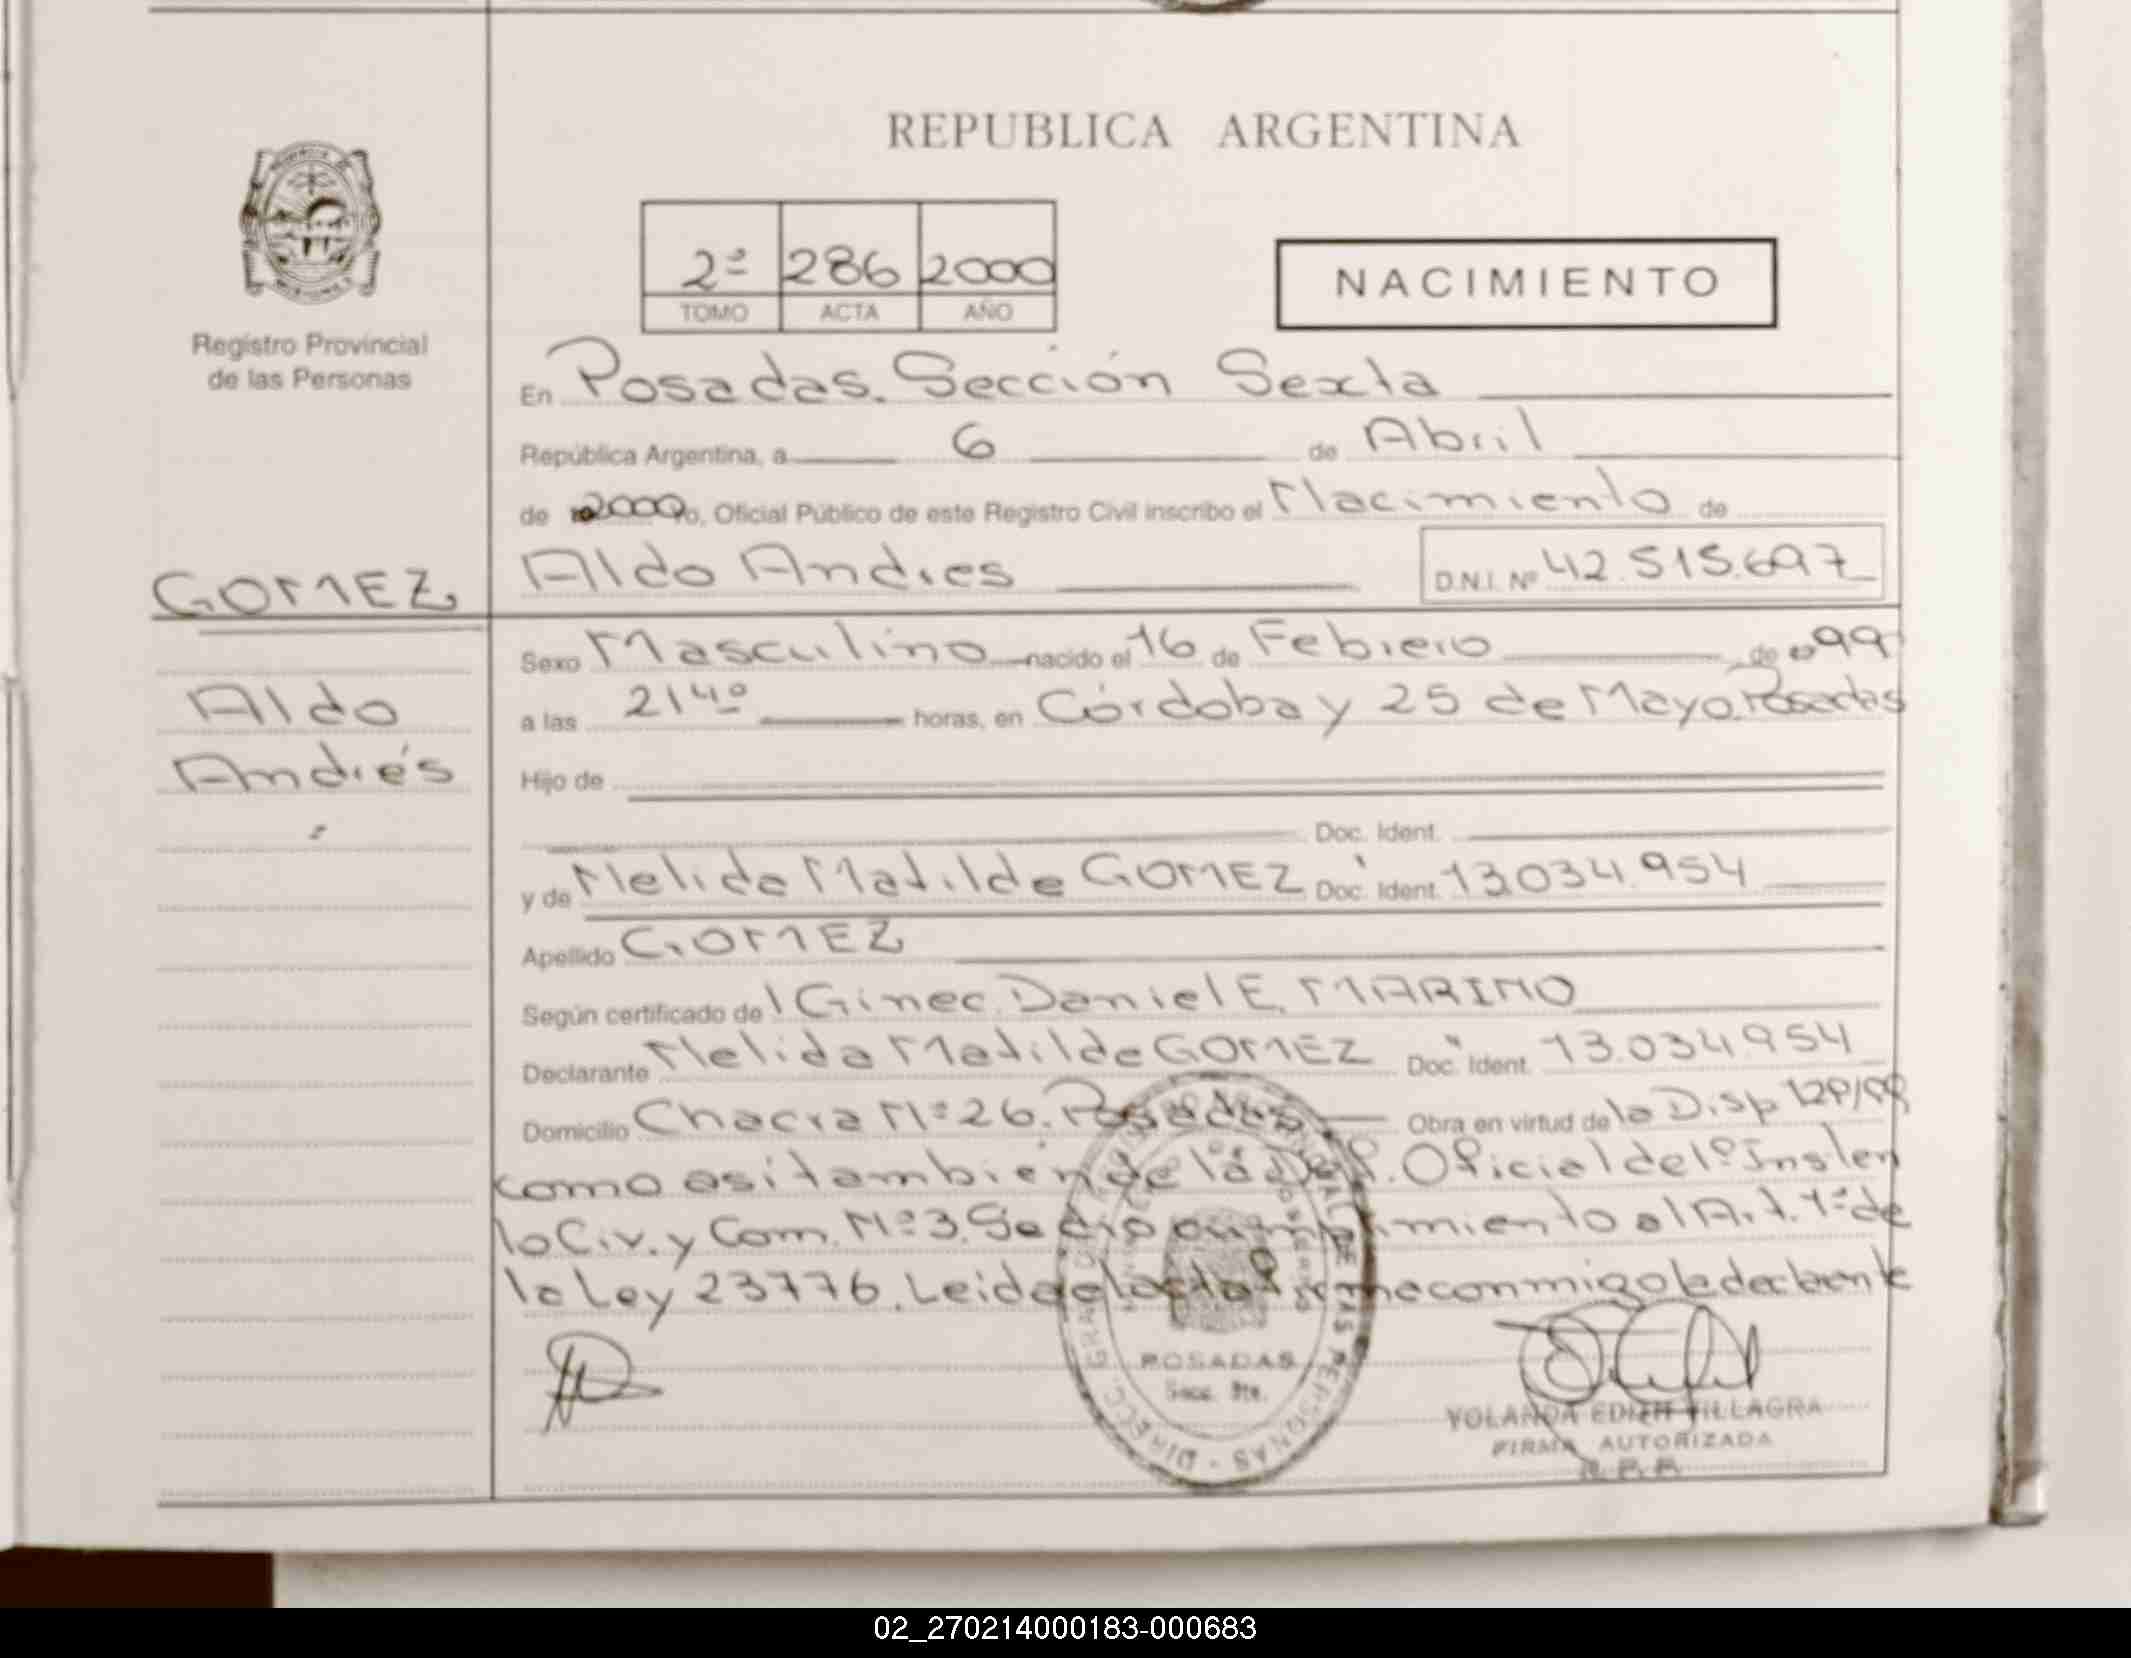 REPUBLICA ARGENTINA
2º 286 2000
TOMO ACTA AÑO
NACIMIENTO
Registro Provincial
de las Personas
GOMEZ
Aldo
Andrés
En Posadas. Sección Sexta
República Argentina, a 6 de Abril
de 2000 Yo, Oficial Público de este Registro Civil inscribo el Nacimiento de
Aldo Andres D.N.I. Nº 42.515.697
Sexo Masculino nacido el 16 de Febrero de 99
a las 2140 horas, en Córdoba y 25 de Mayo. Posadas
Hijo de
Doc. Ident.
y de Nelida Matilde GOMEZ Doc. Ident. 13.034.954
Apellido GOMEZ
Según certificado de l Ginec. Daniel E. MARINO
Declarante Nelida Matilde GOMEZ Doc. Ident. 13.034.954
Domicilio Chacra Nº 26. Posadas Obra en virtud de la Disp
como asi tambien de la Def. Oficial del 1º Inst. en
lo Civ. y Com. Nº 3. Se dio cumplimiento al Art. 1º de
la Ley 23776. Leida el acta firma conmigo la declarante
POSADAS
Secc. 6ta.
YOLANDA EDITH VILLAGRA
FIRMA AUTORIZADA
02_270214000183-000683